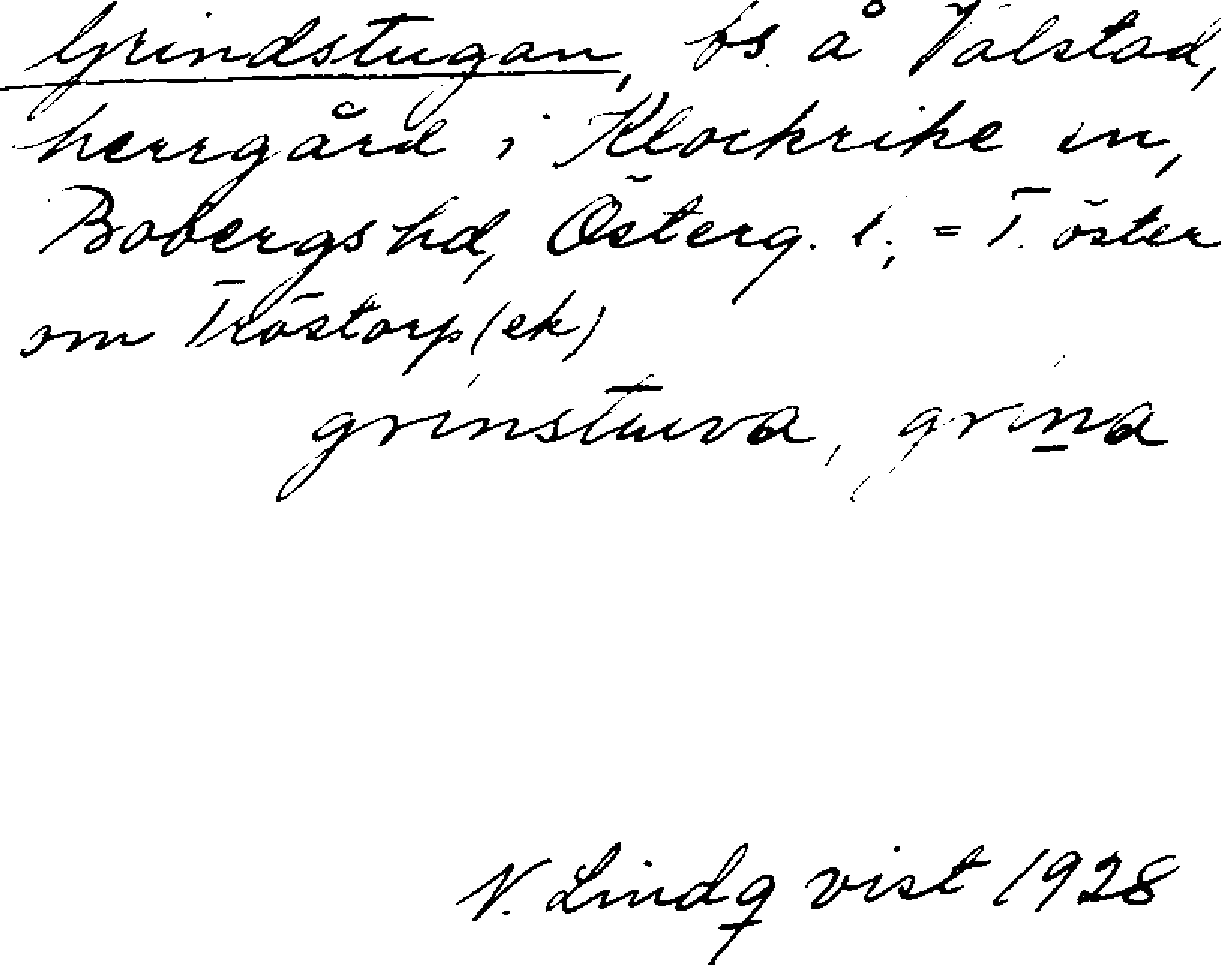 Grindstugan, bs. å Valstad,
herrgård i Klockrike sn,
Bobergs hd, Österg. l.; = T. öster
om Tröstorp (ek)
grinstuwa, grina
N. Lindqvist 1928